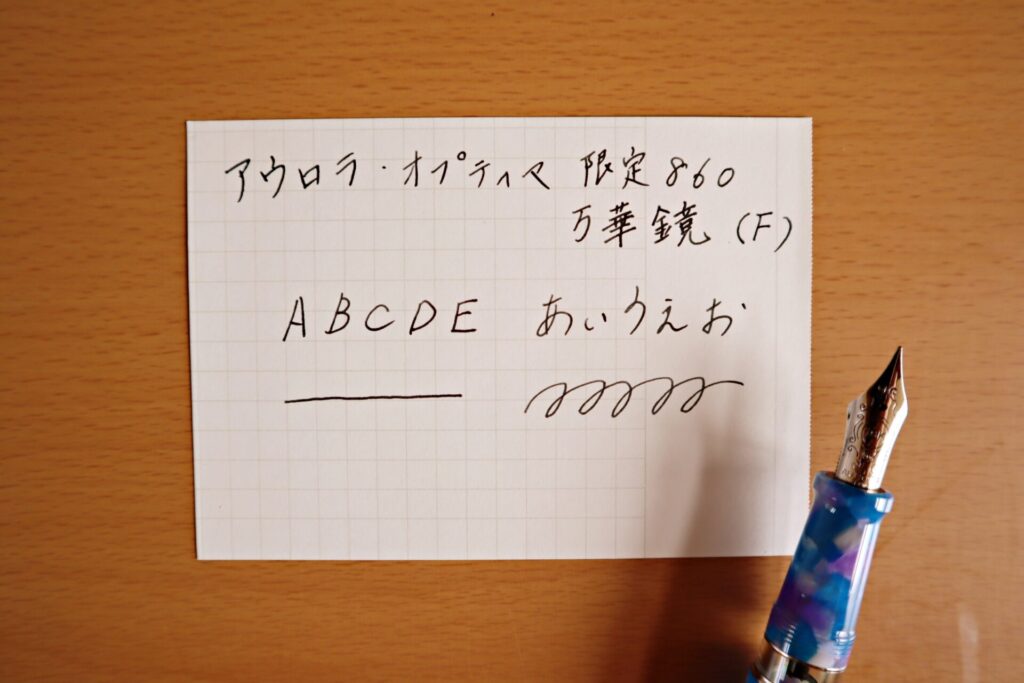 アウロラ・オプティマ 限定860
万華鏡 (F)
ABCDE あいうえお